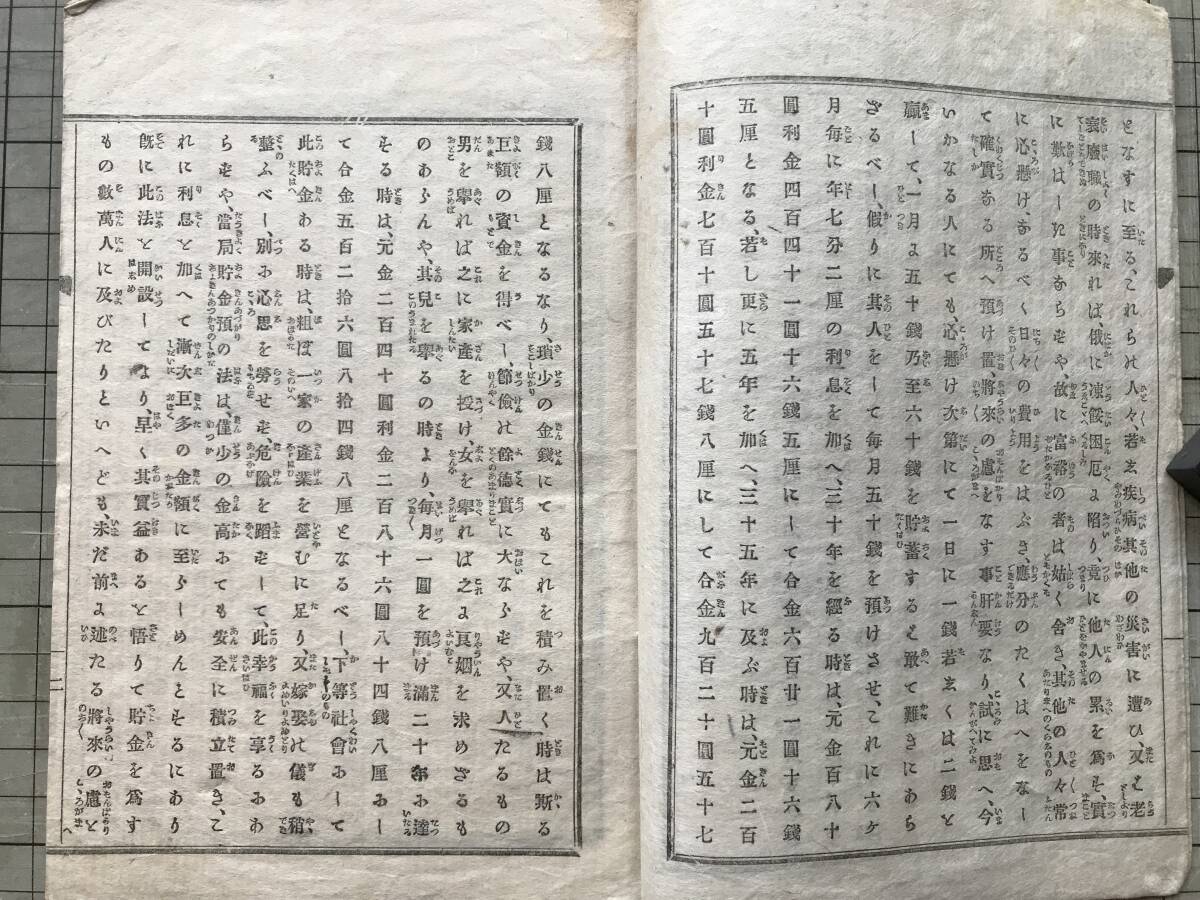 となすに至る、これらの人々、若ゑ疾病其他の災害に遭ひ、又ゑ老
衰廢職の時來れば、俄に凍餒困厄ょ陷り、竟に他人の累を爲モ、實
に歎はしき事ならモや、故に富裕の者は姑く舍き、其他の人々常
に心懸け、なるべく日々の費用をはぶき、應分のたくはへをなし
て確實なる所へ預け置、將來の慮をなす事肝要なり、試に思へ、今
いかなる人にても、心懸け次第にて一日に一錢若ゑくは二錢と
贏して、一月ょ五十錢乃至六十錢を貯蓄するゑ敢て難きにあら
ざるべし、假りに其人をして毎月五十錢を預けさせ、これに六ケ
月毎に年七分二厘の利息を加へ、三十年を經る時は、元金百八十
圓利金四百四十一圓十六錢五厘にして合金六百廿一圓十六錢
五厘となる、若し更に五年を加へ、三十五年に及ぶ時は、元金二百
十圓利金七百十圓五十七錢八厘にして合金九百二十圓五十七
錢八厘となるなり、瑣少の金錢にてもこれを積み置く時は斯る
巨額の資金を得べし、節儉の餘德實に大ならモや、又人たるもの
男を擧れば之に家產を授け、女を擧れば之ょ良姻を求めざるも
のあらんや、其兒を擧るの時より、毎月一圓を預け滿二十年ふ達
モる時は、元金二百四十圓利金二百八十六圓八十四錢八厘ふし
て合金五百二拾六圓八拾四錢八厘となるべし、下等社會ふして
此貯金ある時は、粗ぼ一家の產業を營むに足り、又嫁娶の儀も稍
整ふべし、別ふ心思を勞せモ、危險を蹈モして、此幸福を享るふあ
らモや、當局貯金預の法は、僅少の金高ふても安全に積立置き、こ
れに利息と加へて漸次巨多の金額に至らしめんとモるにあり
旣に此法と開設してより、早く其實益あると悟りて貯金を爲す
もの數萬人に及びたりといへども、未だ前ょ述たる將來の慮と
二